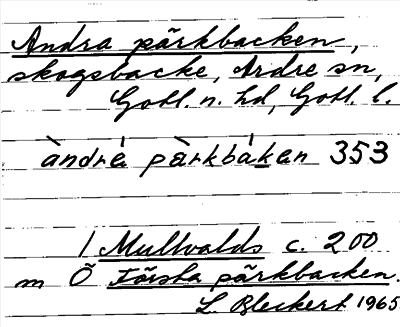 Andra pärkbacken,
skogsbacke, Ardre sn,
Gotl. n. hd, Gotl. l.
àndrè pàrkbákan 353
1 Mullvalds c. 200
m Ö Första pärkbacken.
L. Bleckert 1965